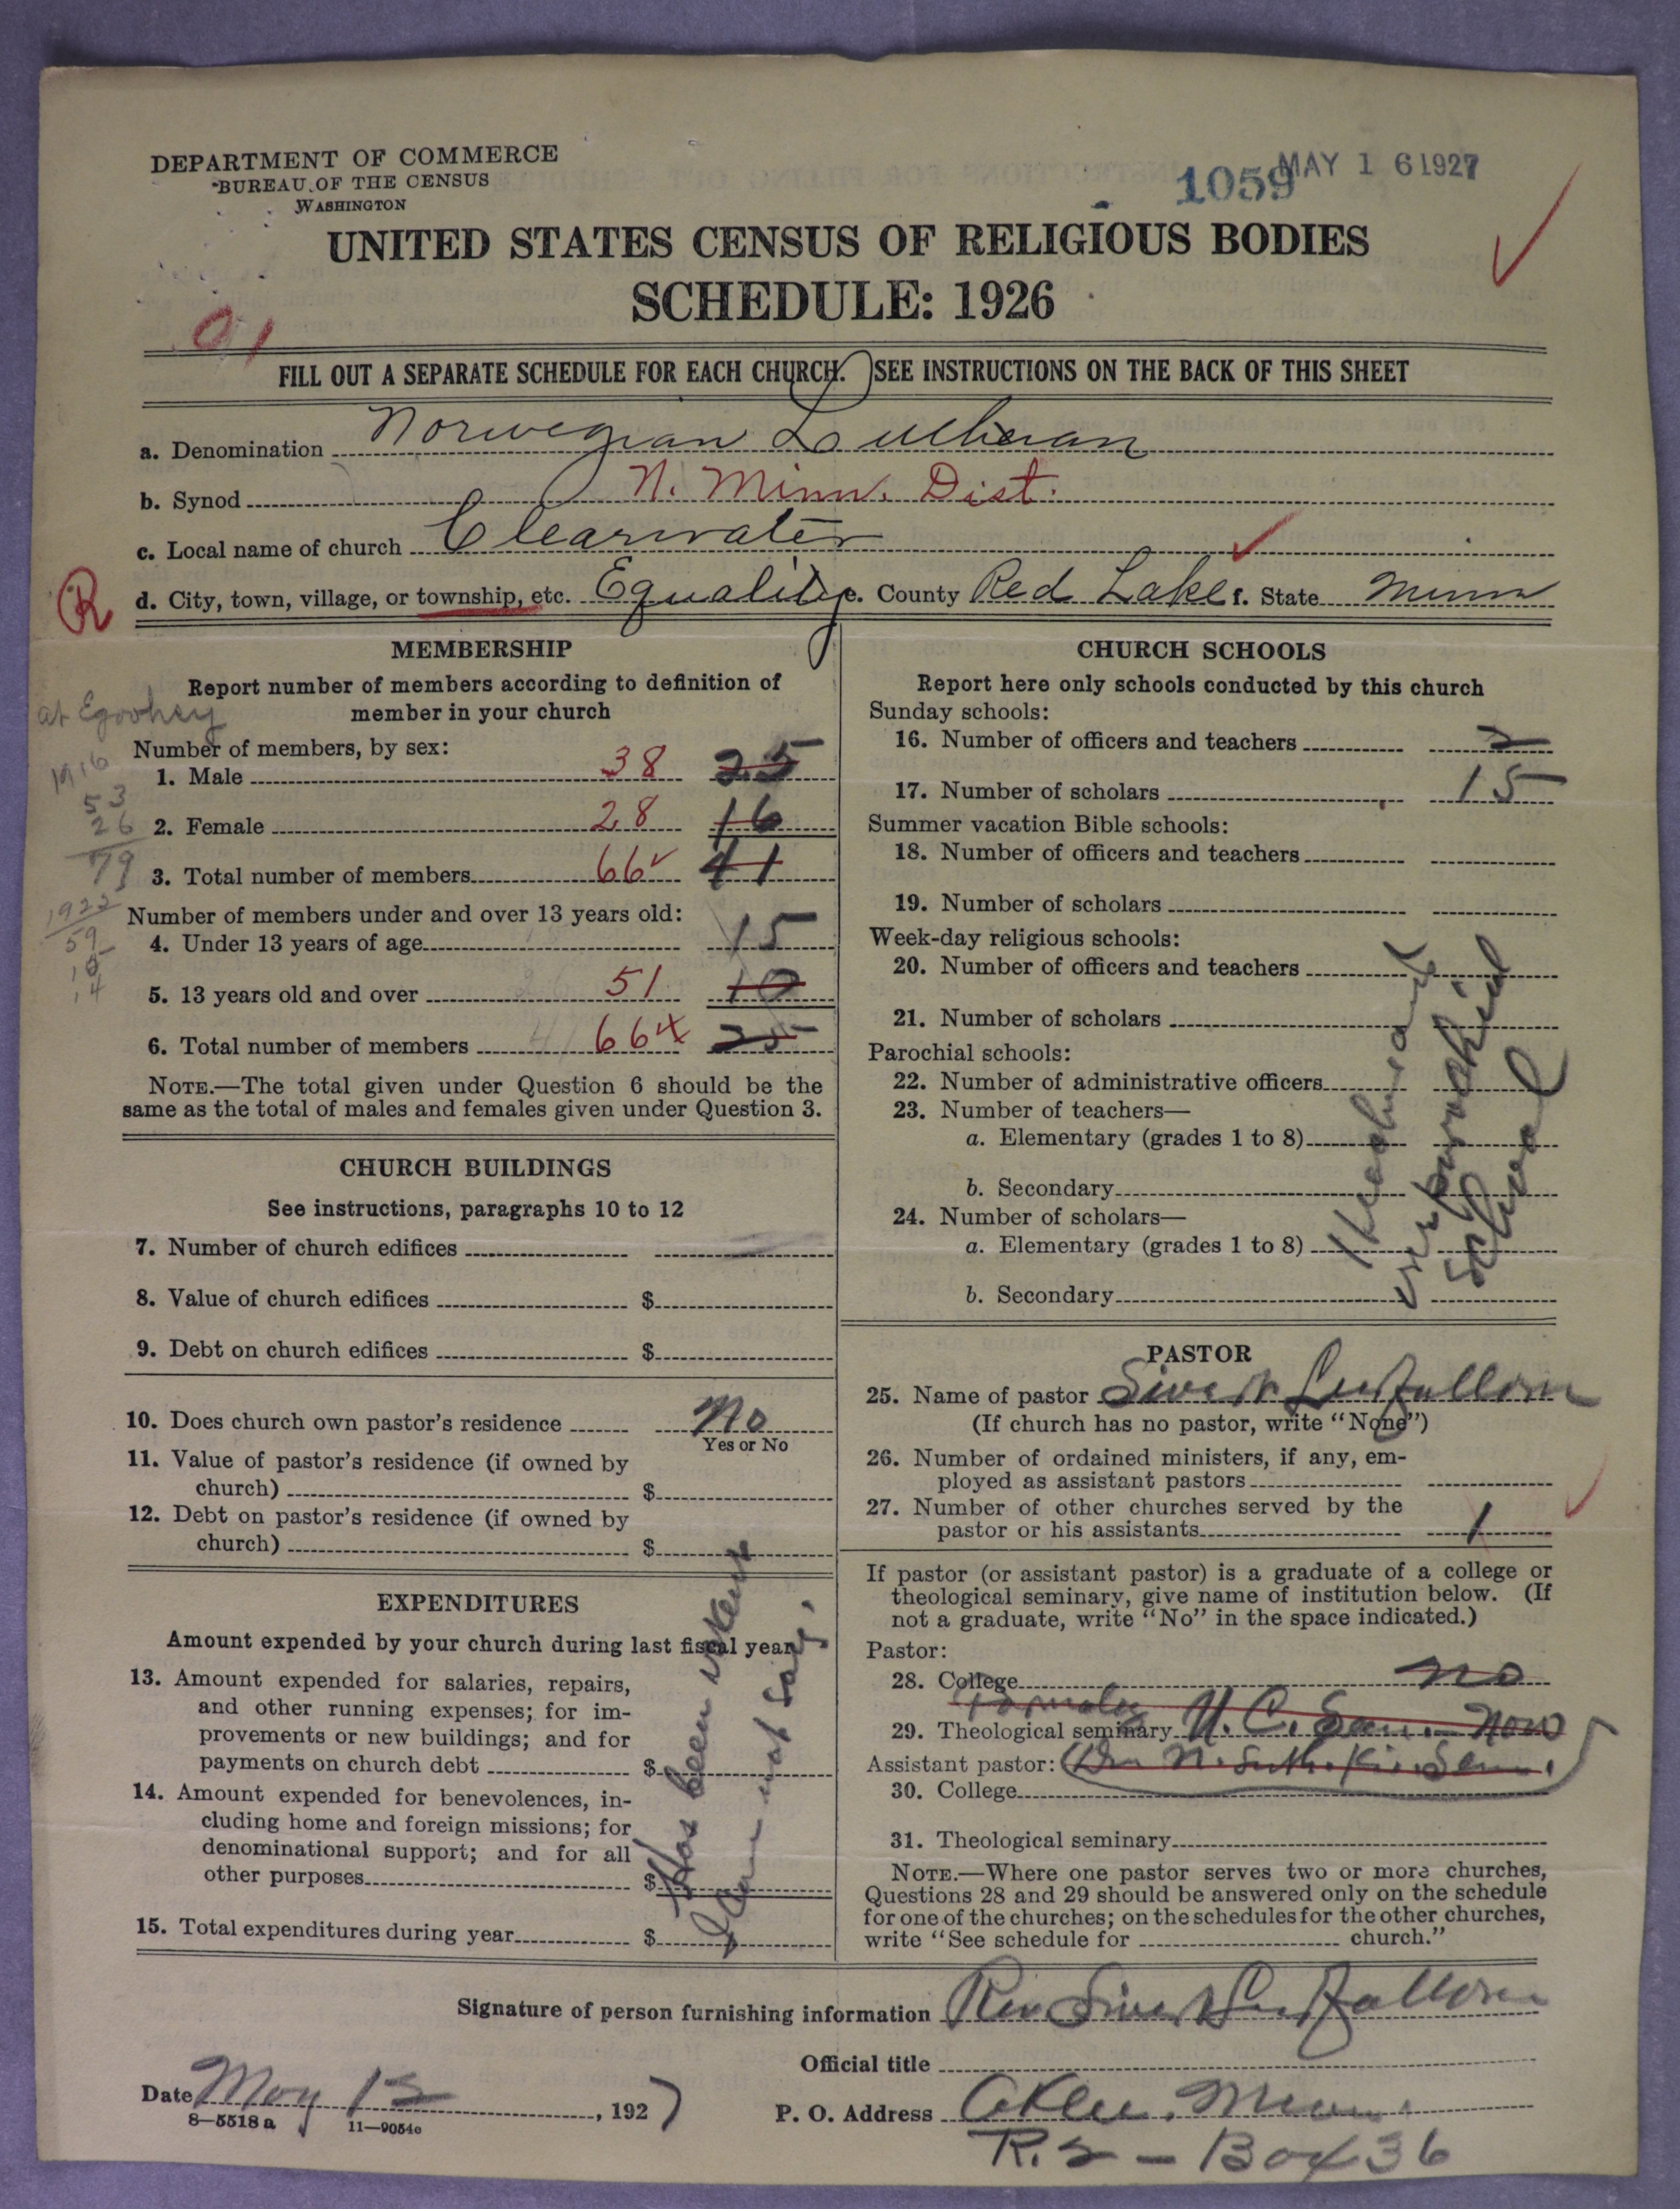 DEPARTMENT OF COMMERCE
BUREAU OF THE CENSUS
WASHINGTON
1059 MAY 16 1927
UNITED STATES CENSUS OF RELIGIOUS BODIES
SCHEDULE: 1926
91
FILL OUT A SEPARATE SCHEDULE FOR EACH CHURCH. SEE INSTRUCTIONS ON THE BACK OF THIS SHEET
a. Denomination Norwegian Lutheran
b. Synod N. Minn. Dist.
c. Local name of church Clearwater
R d. City, town, village, or township, etc. Equality e. County Red Lake f. State Minn
MEMBERSHIP
Report number of members according to definition of
member in your church
at
Number of members, by sex:
1916
1. Male 38 25
53
26 2. Female 28 16
79 3. Total number of members 66 41
1922
Number of members under and over 13 years old:
59 4. Under 13 years of age 15
14 5. 13 years old and over 51 10
6. Total number of members 41 66 25
NOTE.—The total given under Question 6 should be the
same as the total of males and females given under Question 3.
CHURCH BUILDINGS
See instructions, paragraphs 10 to 12
7. Number of church edifices
8. Value of church edifices $
9. Debt on church edifices $
10. Does church own pastor's residence No
Yes or No
11. Value of pastor's residence (if owned by
church) $
12. Debt on pastor's residence (if owned by
church) $
EXPENDITURES
Amount expended by your church during last fiscal year
13. Amount expended for salaries, repairs,
and other running expenses; for im-
provements or new buildings; and for
payments on church debt $
14. Amount expended for benevolences, in-
cluding home and foreign missions; for
denominational support; and for all
other purposes $
15. Total expenditures during year $
Has been vacant
I can not say.
CHURCH SCHOOLS
Report here only schools conducted by this church
Sunday schools:
16. Number of officers and teachers 2
17. Number of scholars 15
Summer vacation Bible schools:
18. Number of officers and teachers
19. Number of scholars
Week-day religious schools:
20. Number of officers and teachers
21. Number of scholars
Parochial schools:
22. Number of administrative officers
23. Number of teachers—
a. Elementary (grades 1 to 8)
b. Secondary
24. Number of scholars—
a. Elementary (grades 1 to 8)
b. Secondary
parochial
school
PASTOR
25. Name of pastor Sivert
(If church has no pastor, write "None")
26. Number of ordained ministers, if any, em-
ployed as assistant pastors
27. Number of other churches served by the
pastor or his assistants 1
If pastor (or assistant pastor) is a graduate of a college or
theological seminary, give name of institution below. (If
not a graduate, write "No" in the space indicated.)
Pastor:
28. College no
Formerly
29. Theological seminary U. C. Sem. now
Assistant pastor: N. Luth. Sem.
30. College
31. Theological seminary
NOTE.—Where one pastor serves two or more churches,
Questions 28 and 29 should be answered only on the schedule
for one of the churches; on the schedules for the other churches,
write "See schedule for church."
Signature of person furnishing information Rev Sivert
Official title
Date May 13, 1927
8—5518 a 11—9054c
P. O. Address Oklee, Minn.
R. 2 — Box 36